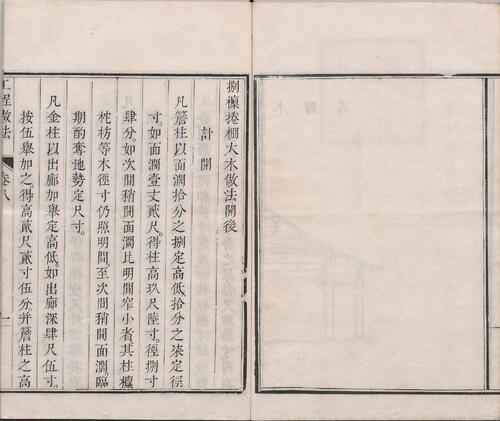 捌檁捲棚大木做法開後
計開
凡簷柱以面濶拾分之捌定高低拾分之柒定徑
寸。如面濶壹丈貳尺。得柱高玖尺陸寸。徑捌寸
肆分。如次間稍間面濶比明間窄小者。其柱檁
柁枋等木徑寸仍照明間。至次間稍間面濶。臨
期酌奪地勢定尺寸。
凡金柱以出廊加舉定高低。如出廊深肆尺伍寸。
按伍舉加之。得高貳尺貳寸伍分。并簷柱之高
工程做法
卷八
一